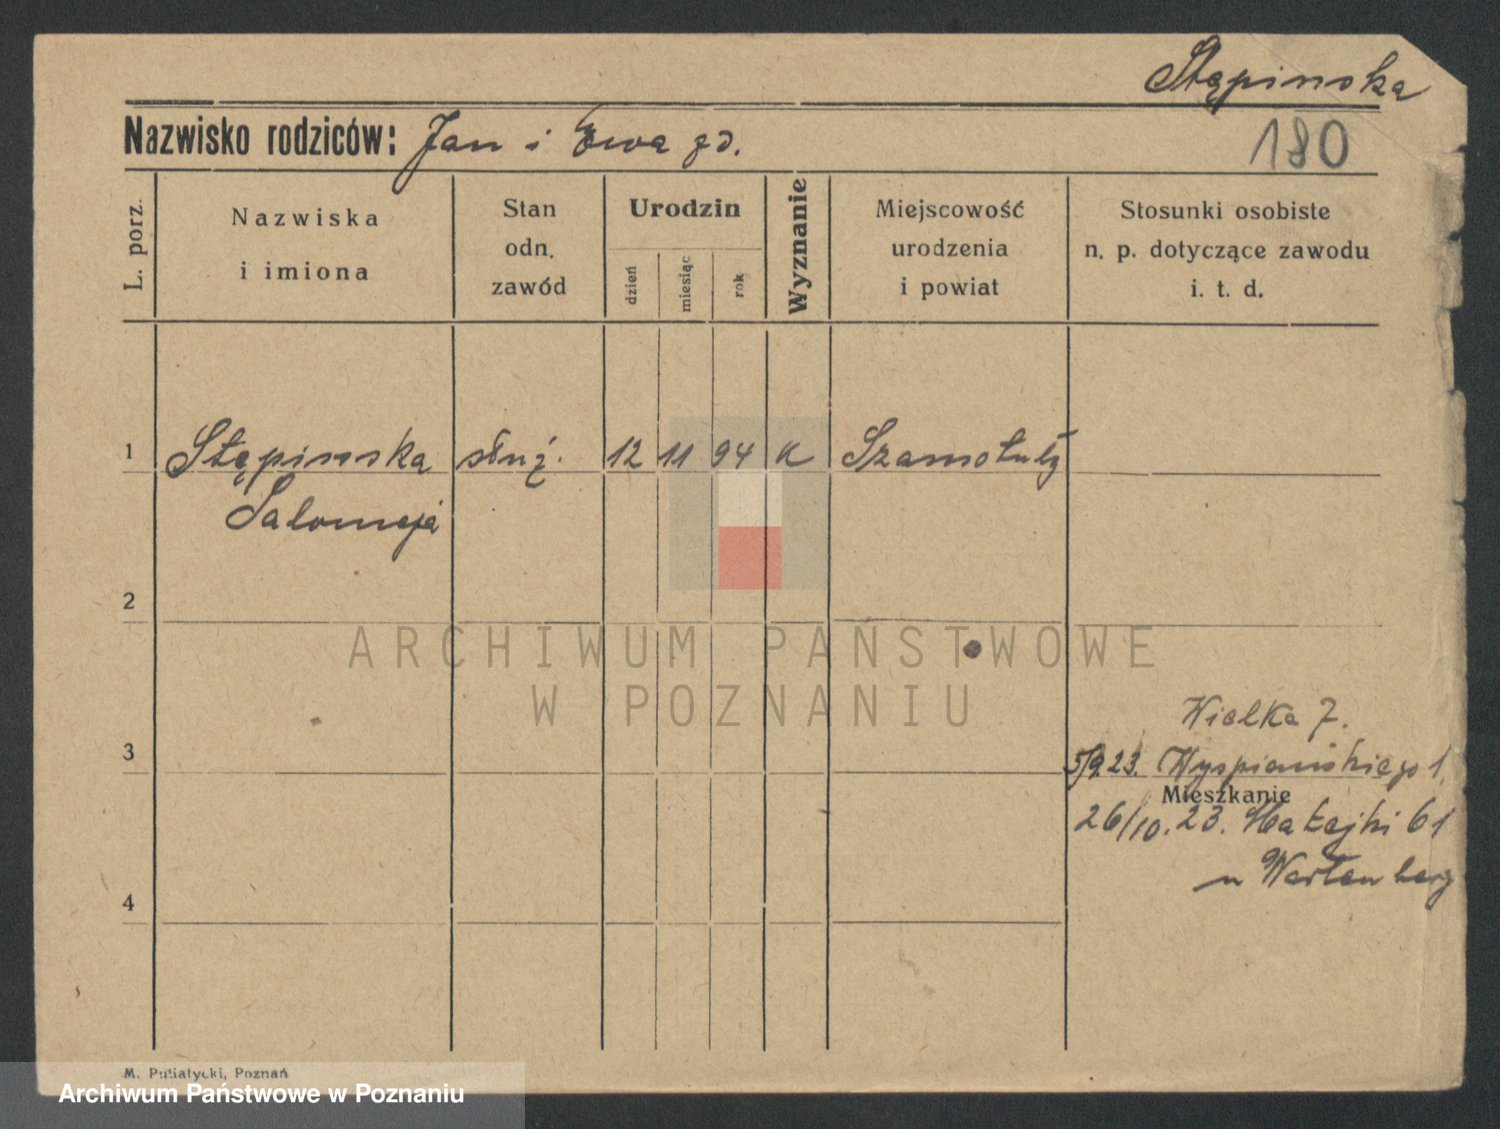 Stępinska
Nazwisko rodziców: Jan i Ewa zd.
180
L. porz.
Nazwiska
i imiona
Stan
odn.
zawód
Urodzin
dzień
miesiąc
rok
Wyznanie
Miejscowość
urodzenia
i powiat
Stosunki osobiste
n. p. dotyczące zawodu
i. t. d.
1 Stępinska służ. 12 11 94 K Szamotuły
Salomeja
2
ARCHIWUM PAŃSTWOWE
W POZNANIU
Wielka 7.
3
5/9.23. Wyspiańskiego 1.
Mieszkanie
26/10.23. Matejki 61
u Wartenberg
4
M. Putiatycki, Poznań
Archiwum Państwowe w Poznaniu